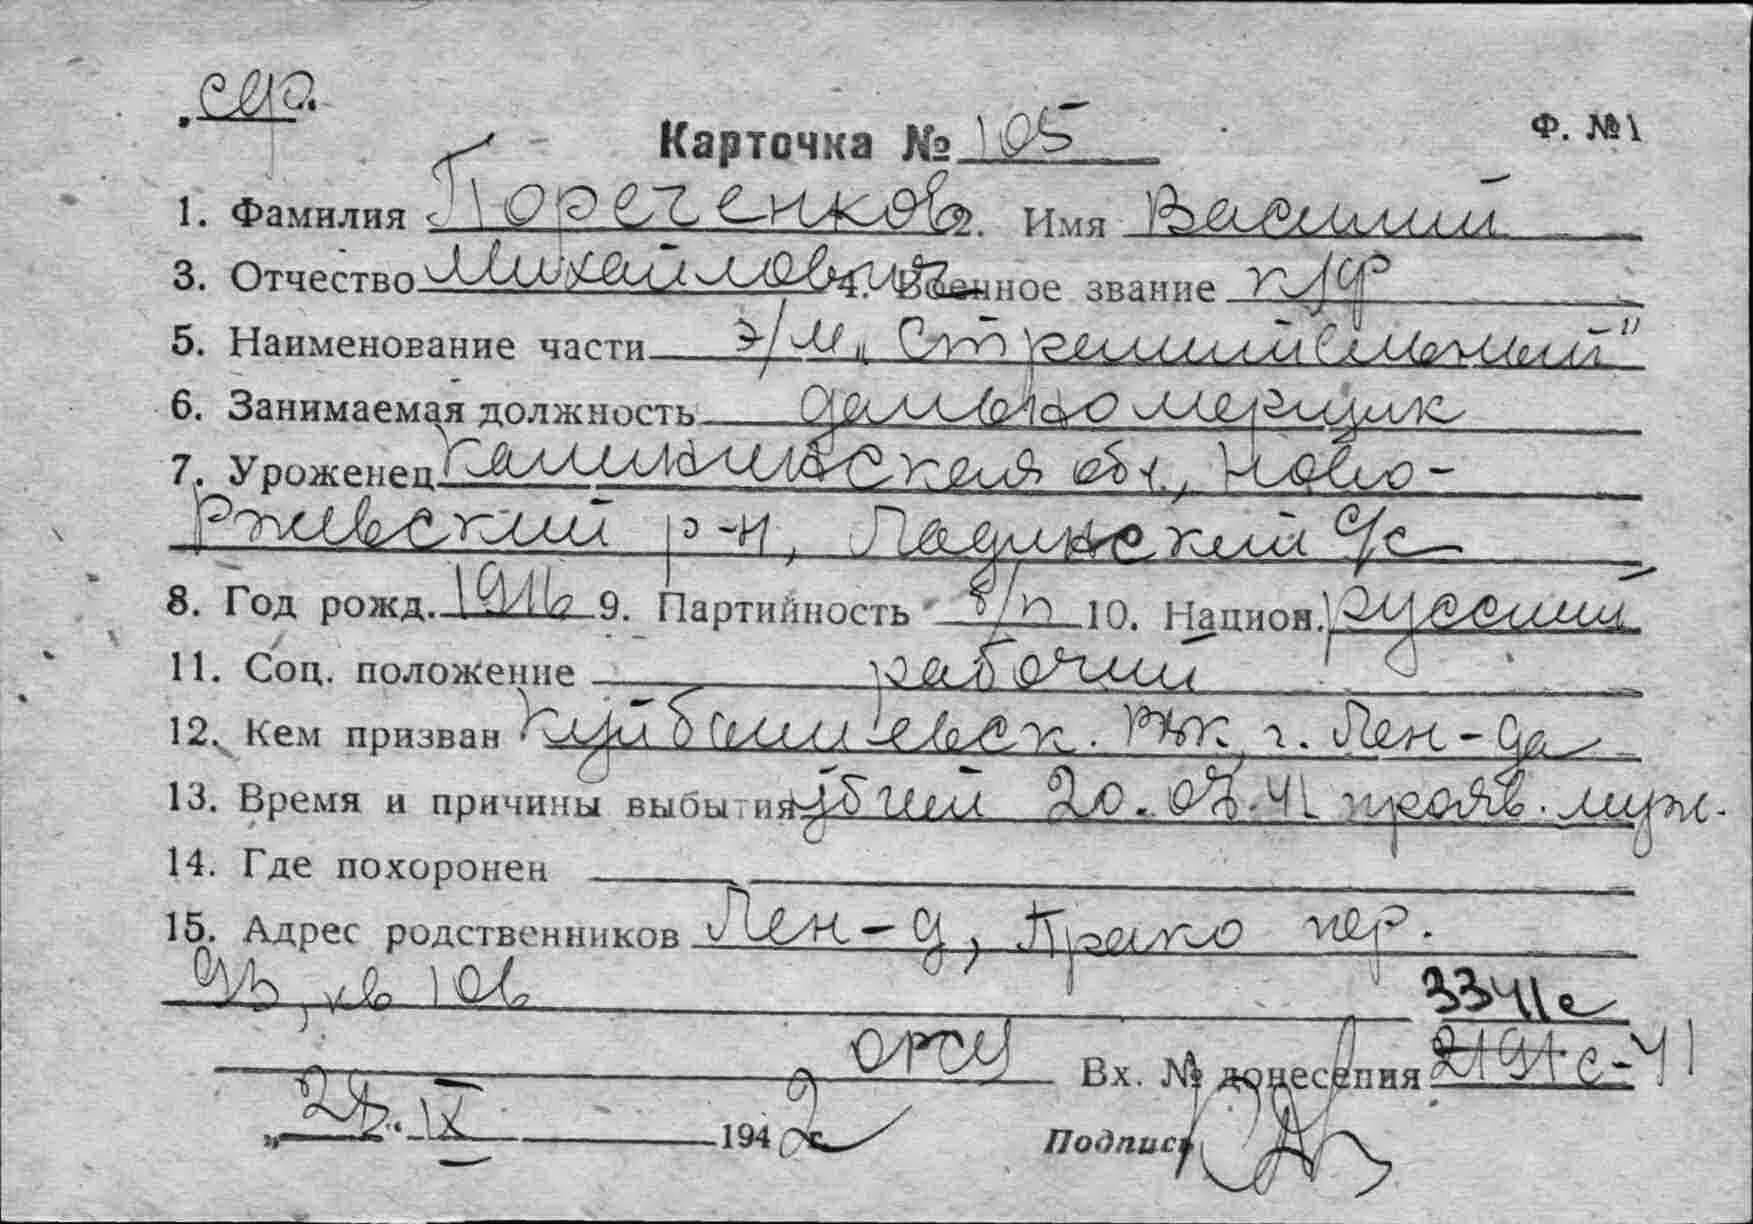 Карточка № 105 Ф. №1
1. Фамилия Пореченков 2. Имя Василий
3. Отчество Михайлович 4. Военное звание к/ф
5. Наименование части э/м „Стремительный"
6. Занимаемая должность дальномерщик
7. Уроженец Калининская обл., Ново-
Ржевский р-н, Ладинский с/с
8. Год рожд. 1916 9. Партийность б/п 10. Национ. русский
11. Соц. положение рабочий
12. Кем призван Куйбышевск. РВК, г. Лен-да
13. Время и причины выбытия убит 20.07.41 прояв. муж.
14. Где похоронен
15. Адрес родственников Лен-д, пер.
кв 106
3341с
Вх. № донесения 2191с-41
„28." IX 1942 г.
Подпись